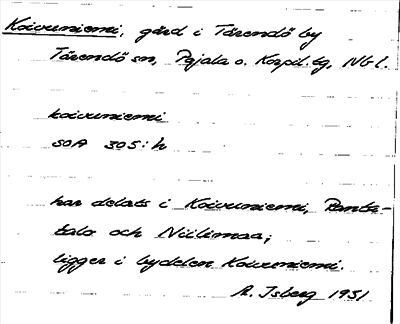 Koivuniemi, gård i Tärendö by
Tärendö sn, Pajala o. Korpil. tg, Nbl.
koivuniemi
SOA 305:h
har delats i Koivuniemi, Ranta-
talo och Niilimaa;
ligger i bydelen Koivuniemi.
R. Isberg 1931